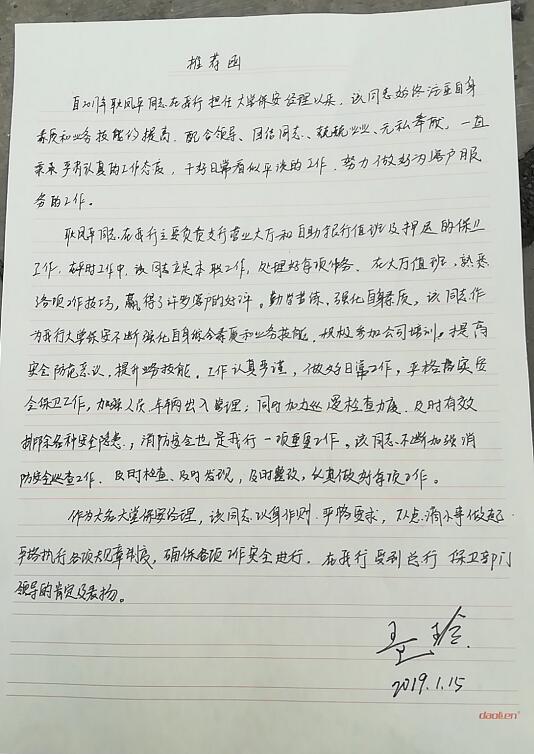 推荐函
自2017年耿凤平同志在我行担任大堂保安经理以来，该同志始终注重自身
素质和业务技能的提高，配合领导、团结同志、兢兢业业、无私奉献，一直
秉承严肃认真的工作态度，干好日常看似平淡的工作，努力做好为客户服
务的工作。
耿凤平同志在我行主要负责支行营业大厅和自助银行值班及押运的保卫
工作，在平时工作中，该同志立足本职工作，处理好每项任务。在大厅值班，熟悉
各项工作技巧，赢得了许多客户的好评。勤学苦练，强化自身素质，该同志作
为我行大堂保安不断强化自身综合素质和业务技能，积极参加公司培训，提高
安全防范意识，提升业务技能。工作认真严谨，做好日常工作，严格落实安
全保卫工作，加强人员车辆出入管理；同时加力巡逻检查力度，及时有效
排除各种安全隐患，消防安全也是我行一项重要工作。该同志不断加强消
防安全巡查工作，及时检查、及时发现，及时整改，认真做到每项工作。
作为大名大堂保安经理，该同志以身作则，严防要求，从点滴小事做起
严格执行各项规章制度，确保各项工作安全进行，在我行受到总行保卫部门
领导的肯定及表扬。
2019.1.15
daolien